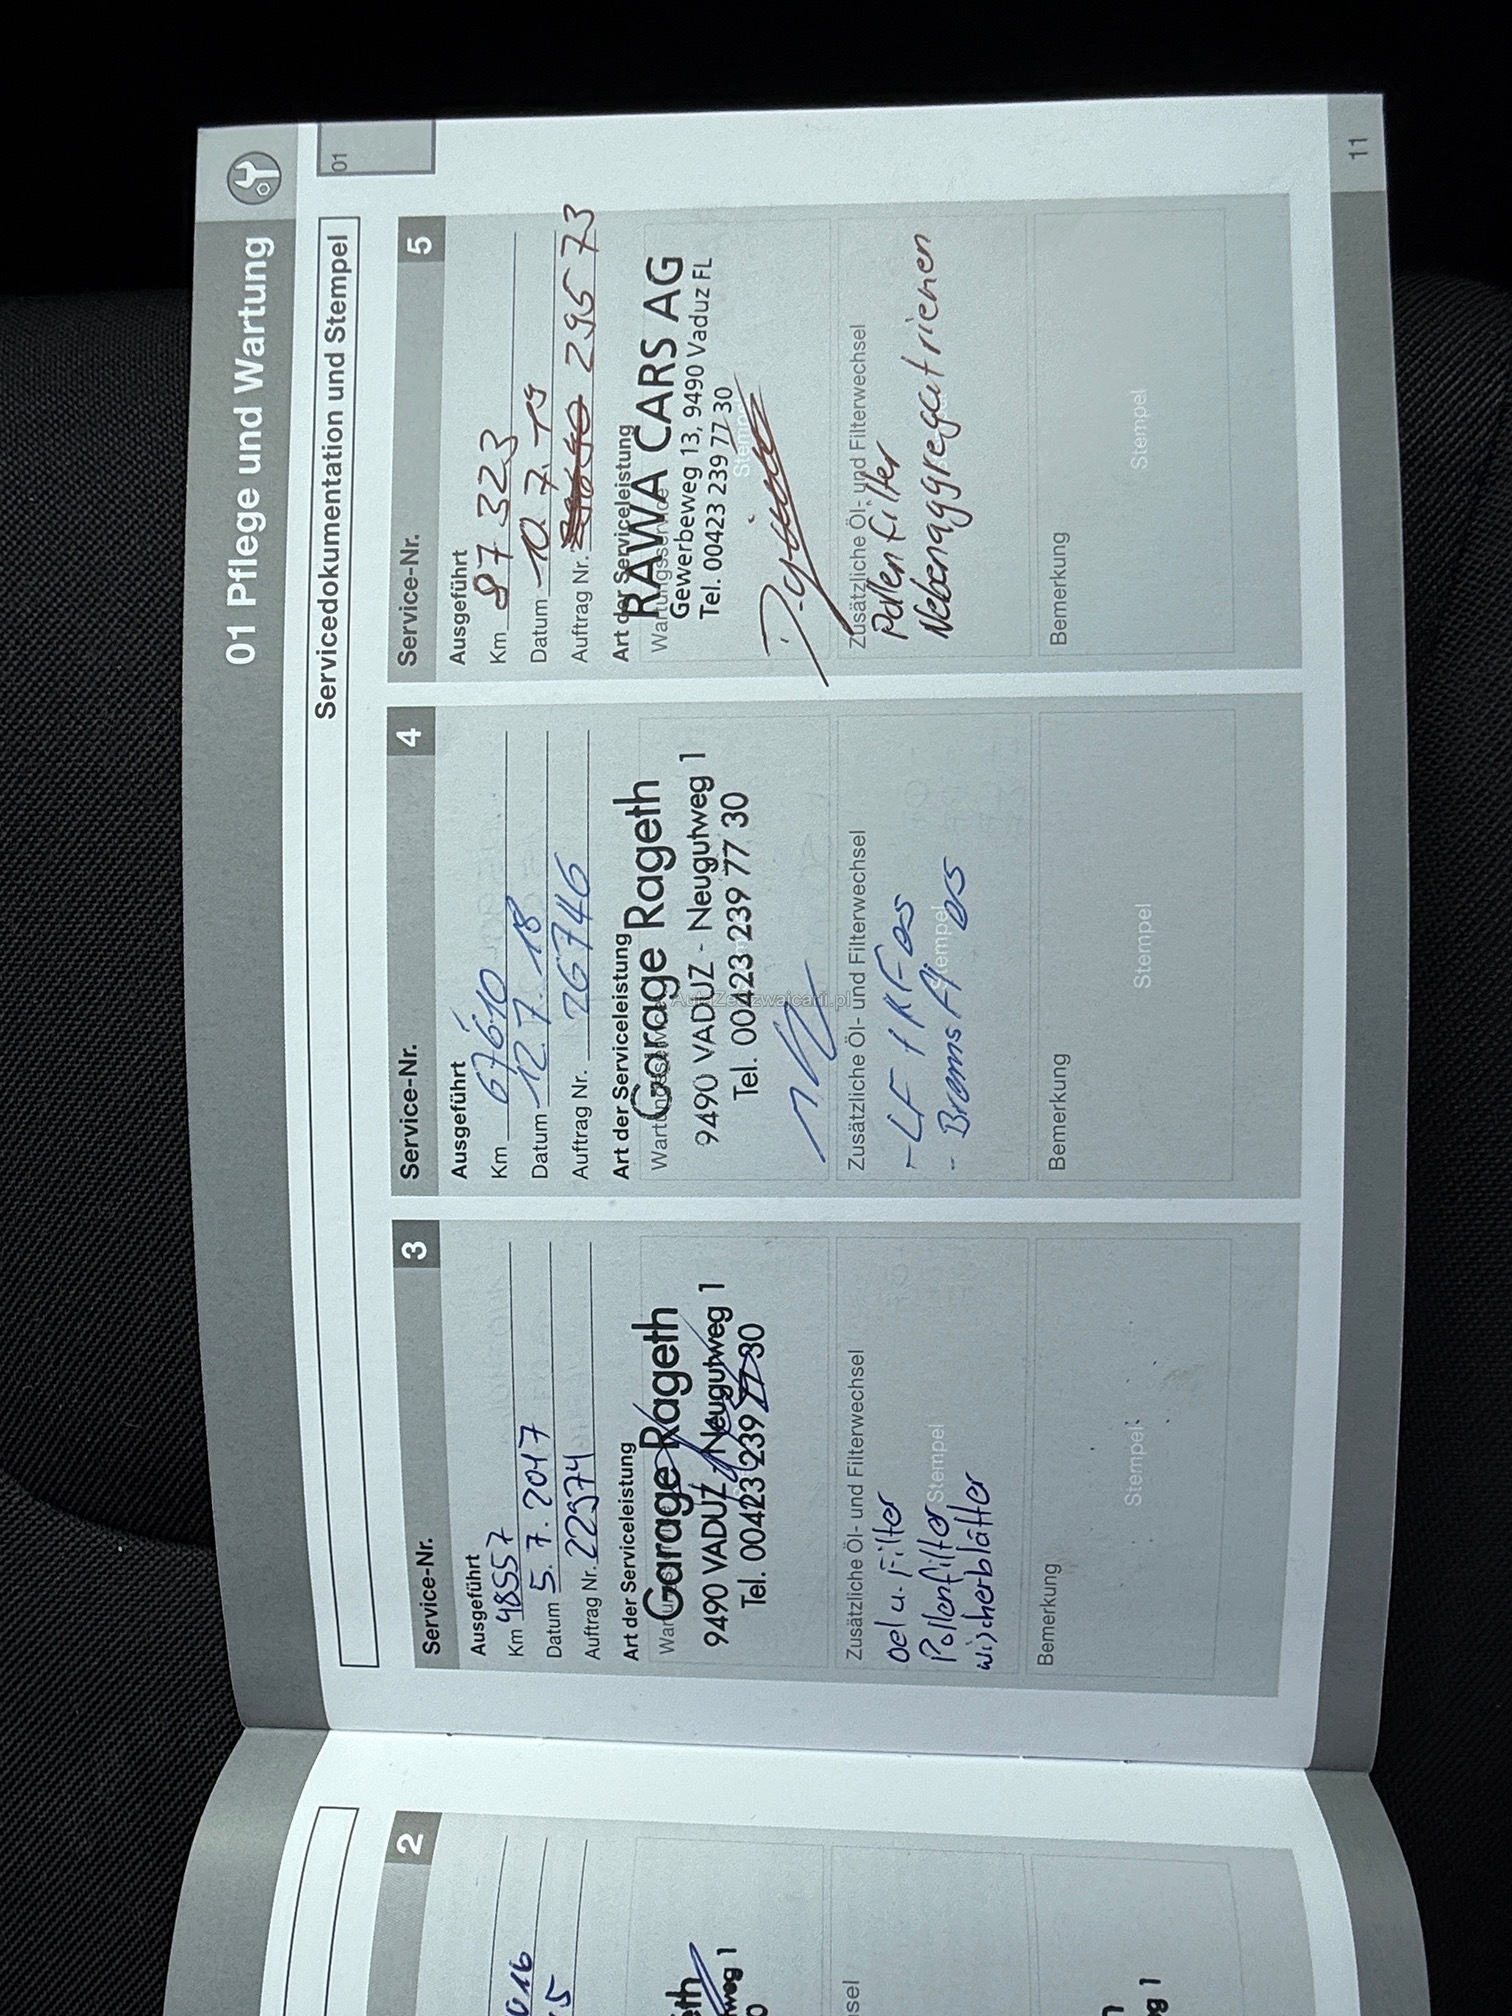 01 Pflege und Wartung
Servicedokumentation und Stempel
01
Service-Nr. 3
Ausgeführt
Km 48557
Datum 5.7.2017
Auftrag Nr. 22974
Art der Serviceleistung
Garage Rageth
9490 VADUZ - Neugutweg 1
Tel. 00423 239 77 30
Zusätzliche Öl- und Filterwechsel
Oel u. Filter
Pollenfilter
Stempel
Wischerblätter
Bemerkung
Stempel
Service-Nr. 4
Ausgeführt
Km 67610
Datum 12.7.18
Auftrag Nr. 26746
Art der Serviceleistung
Garage Rageth
9490 VADUZ - Neugutweg 1
Tel. 00423 239 77 30
Zusätzliche Öl- und Filterwechsel
- LF + KF es
Stempel
- Brems Fl es
Bemerkung
Stempel
Service-Nr. 5
Ausgeführt
Km 87323
Datum 10.7.19
Auftrag Nr. 29573
Art der Serviceleistung
RAWA CARS AG
Wartungsservice
Gewerbeweg 13, 9490 Vaduz FL
Tel. 00423 239 77 30
Zusätzliche Öl- und Filterwechsel
Pollenfilter
Nebenaggregatriemen
Bemerkung
Stempel
11
2
AutaZeSzwajcarii.pl